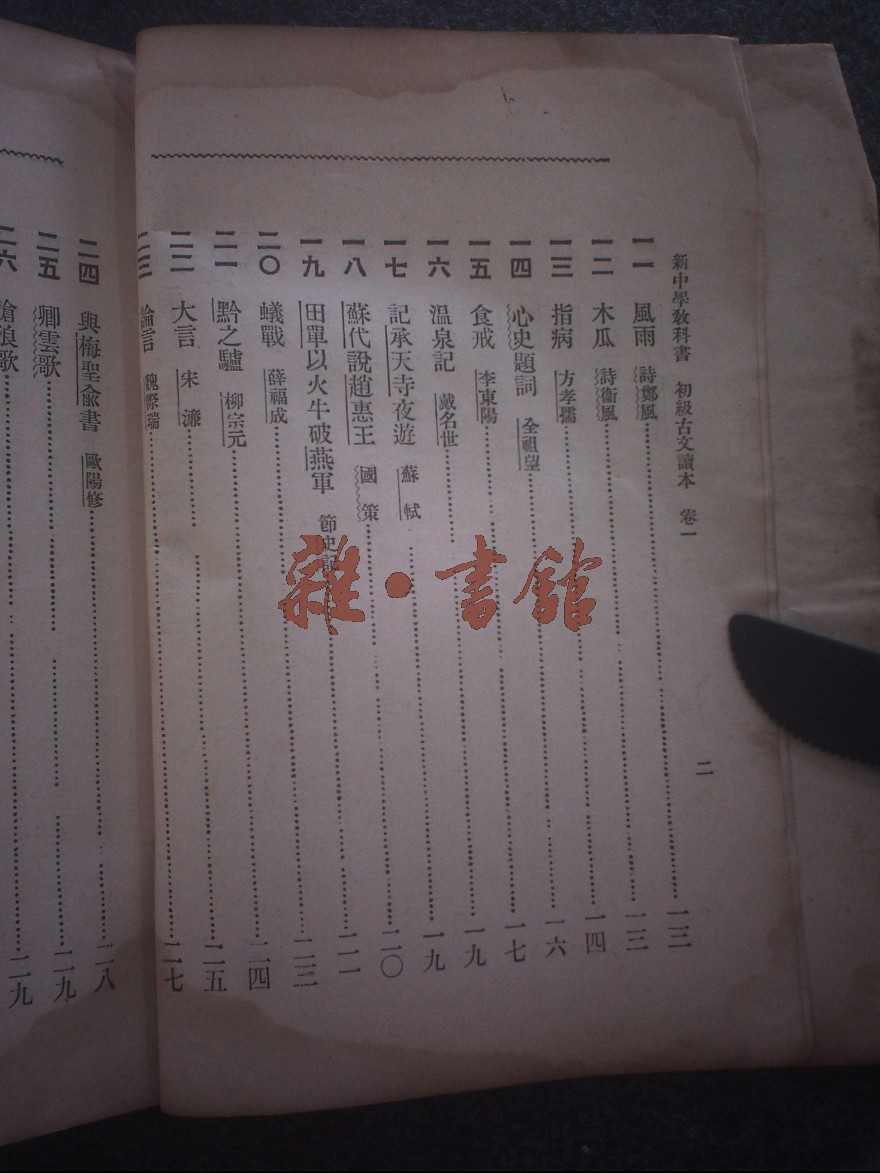 新中學敎科書　初級古文讀本　卷一
二
一一　風雨　詩鄭風　一三
一二　木瓜　詩衞風　一三
一三　指病　方孝孺　一四
一四　心史題詞　全祖望　一六
一五　食戒　李東陽　一七
一六　温泉記　戴名世　一九
一七　記承天寺夜遊　蘇軾　一九
一八　蘇代說趙惠王　國策　二〇
一九　田單以火牛破燕軍　節史記　二一
二〇　蟻戰　薛福成　二三
二一　黔之驢　柳宗元　二四
二二　大言　宋濂　二五
二三　論言　魏際瑞　二七
二四　與梅聖兪書　歐陽修　二八
二五　卿雲歌　二九
二六　滄浪歌　二九
雜·書館